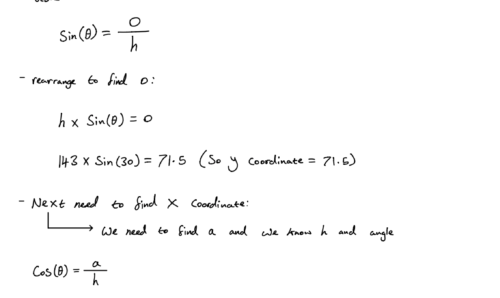 Sin(θ) = O/h
- rearrange to find O:
h x Sin(θ) = O
143 x Sin(30) = 71.5 (So y coordinate = 71.5)
- Next need to find X coordinate:
We need to find a and we know h and angle
Cos(θ) = a/h